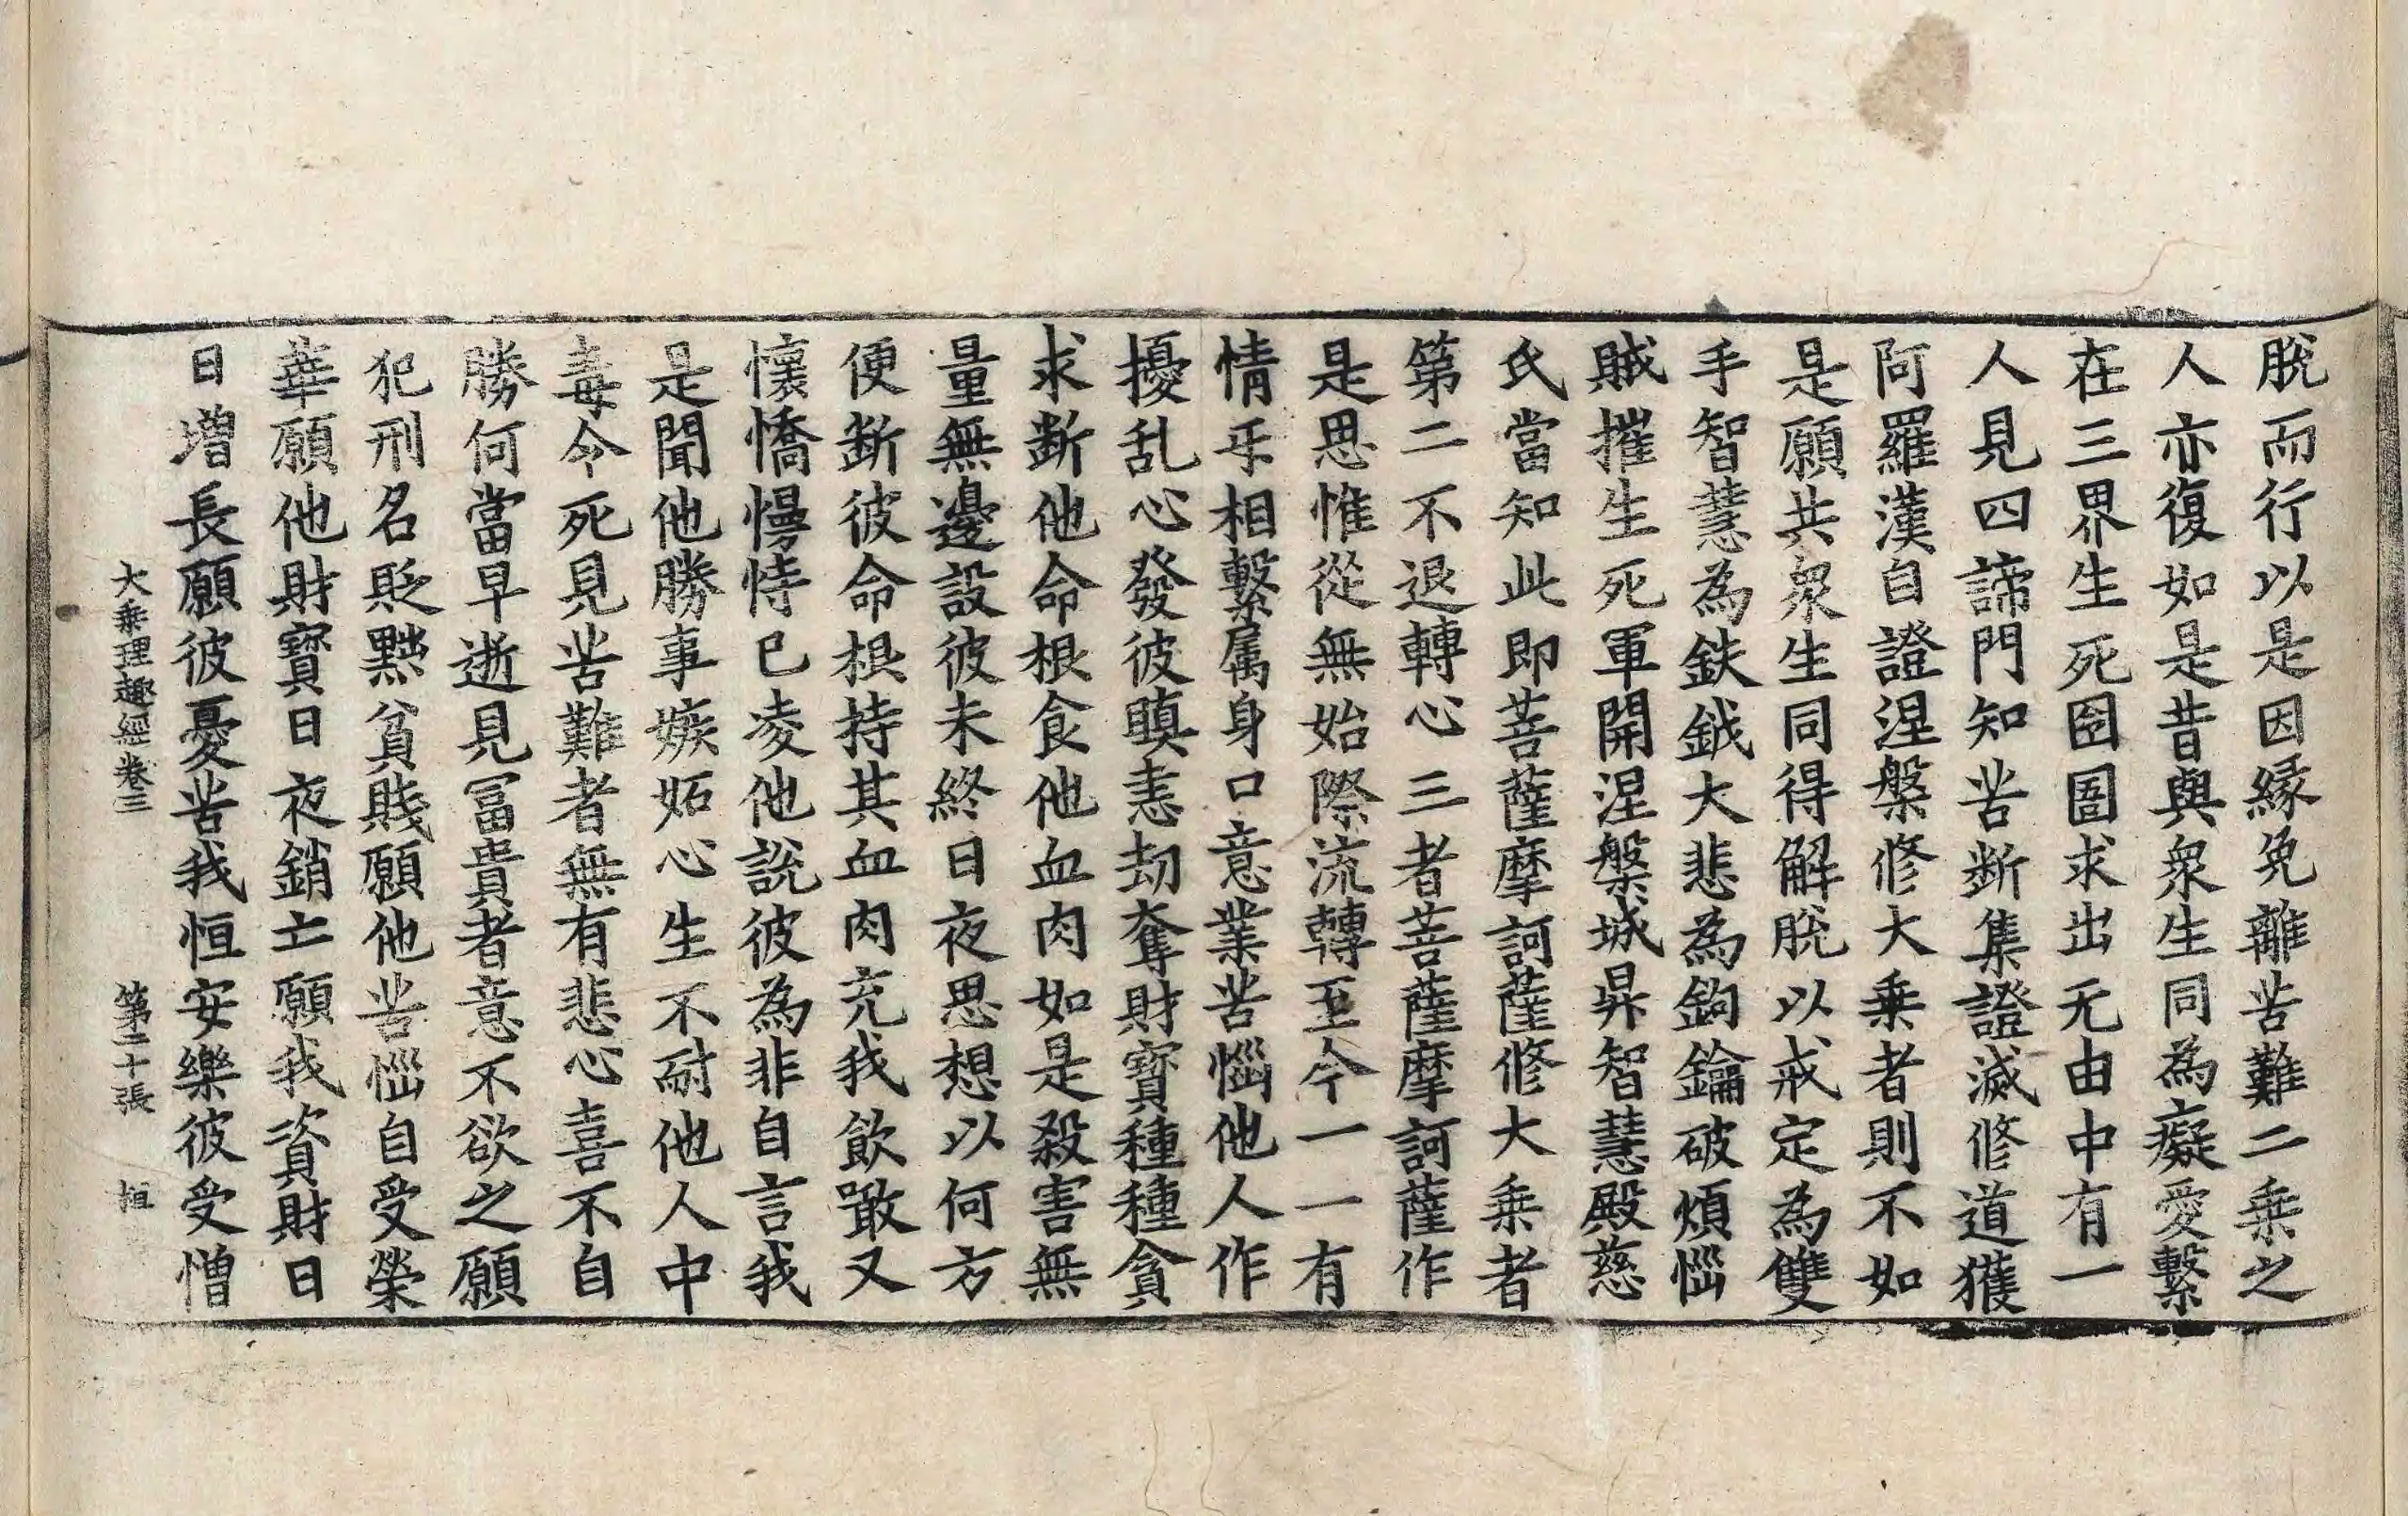 脫而行以是因縁免離苦難二乗之
人亦復如是昔與衆生同為癡愛繫
在三界生死囹圄求出无由中有一
人見四諦門知苦断集證滅修道獲
阿羅漢自證涅槃修大乗者則不如
是願共衆生同得解脫以戒定為雙
手智慧為鈇鉞大悲為鉤鑰破煩惱
賊摧生死軍開涅槃城昇智慧殿慈
氏當知此即菩薩摩訶薩修大乗者
第二不退轉心三者菩薩摩訶薩作
是思惟從無始際流轉至今一一有
情𠄔相繫属身口意業苦惱他人作
擾乱心發彼瞋恚劫奪財寳種種貪
求断他命根食他血肉如是殺害無
量無邊設彼未終日夜思想以何方
便断彼命根持其血肉充我飲噉又
懷憍慢恃已凌他說彼為非自言我
是聞他勝事嫉妬心生不耐他人中
毒令死見苦難者無有悲心喜不自
勝何當早逝見冨貴者意不欲之願
犯刑名貶黜貧賤願他苦惱自受榮
華願他財寳日夜銷亡願我資財日
日增長願彼憂苦我恒安樂彼受憎
大乗理趣經卷三　第二十張　恒